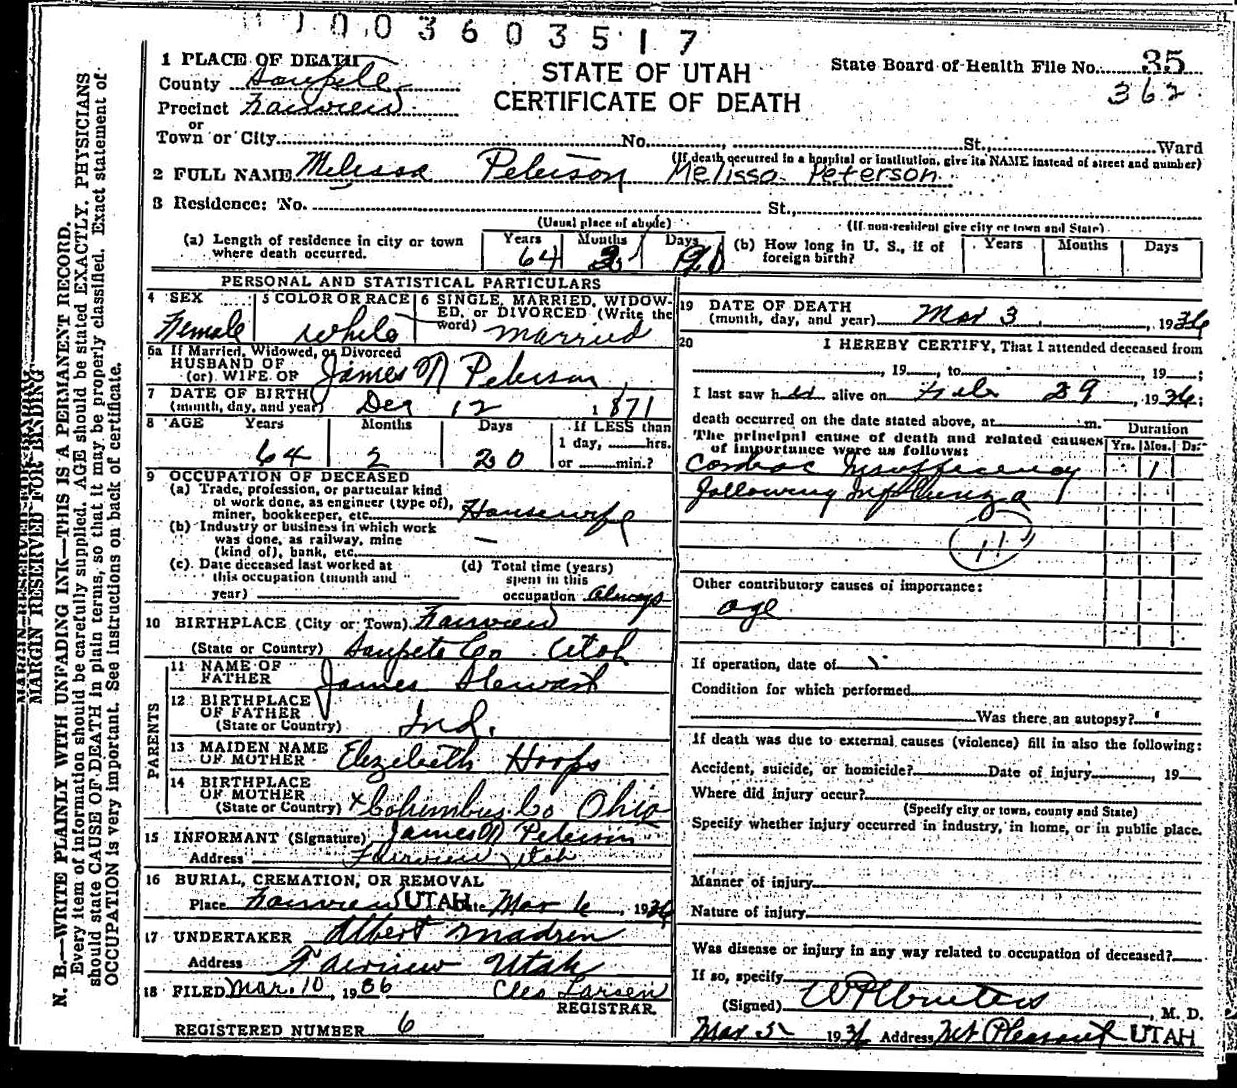 0 1 0 0 3 6 0 3 5 1 7
1 PLACE OF DEATH
County Sanpete
Precinct Fairview
or
Town or City No. St., Ward
STATE OF UTAH
CERTIFICATE OF DEATH
State Board of Health File No. 35
362
(If death occurred in a hospital or institution, give its NAME instead of street and number)
2 FULL NAME Melissa Peterson Melissa Peterson
3 Residence: No. St.,
(Usual place of abode) (If non-resident give city or town and State)
(a) Length of residence in city or town where death occurred. Years 64 Months 2 Days 20 (b) How long in U. S., if of foreign birth? Years Months Days
PERSONAL AND STATISTICAL PARTICULARS
4 SEX 5 COLOR OR RACE 6 SINGLE, MARRIED, WIDOW-
ED, or DIVORCED (Write the
word)
Female White Married
6a If Married, Widowed, or Divorced
HUSBAND OF
(or) WIFE OF James N Peterson
7 DATE OF BIRTH
(month, day, and year) Dec 12 1871
8 AGE Years Months Days If LESS than
1 day, hrs.
or min.?
64 2 20
9 OCCUPATION OF DECEASED
(a) Trade, profession, or particular kind
of work done, as engineer (type of),
miner, bookkeeper, etc. Housewife
(b) Industry or business in which work
was done, as railway, mine
(kind of), bank, etc. —
(c) Date deceased last worked at
this occupation (month and
year)
(d) Total time (years)
spent in this
occupation always
10 BIRTHPLACE (City or Town) Fairview
(State or Country) Sanpete Co Utah
PARENTS
11 NAME OF
FATHER James Stewart
12 BIRTHPLACE
OF FATHER
(State or Country) Ind.
13 MAIDEN NAME
OF MOTHER Elezebeth Hoops
14 BIRTHPLACE
OF MOTHER
(State or Country) x Columbus Co Ohio
15 INFORMANT (Signature) James N Peterson
Address Fairview Utah
16 BURIAL, CREMATION, OR REMOVAL
Place Fairview UTAH Date Mar 6, 1936
17 UNDERTAKER Albert Madsen
Address Fairview Utah
18 FILED Mar. 10, 1936 Cleo Larsen
REGISTRAR
REGISTERED NUMBER 6
19 DATE OF DEATH
(month, day, and year) Mar 3, 1936
20 I HEREBY CERTIFY, That I attended deceased from
, 19 , to , 19 ;
I last saw h alive on Feb 29, 1936;
death occurred on the date stated above, at m.
The principal cause of death and related causes
of importance were as follows:
Duration
Yrs. Mos. Ds.
Cardiac Insufficiency 1
following Influenza
11
Other contributory causes of importance:
age
If operation, date of
Condition for which performed
Was there an autopsy?
If death was due to external causes (violence) fill in also the following:
Accident, suicide, or homicide? Date of injury , 19
Where did injury occur?
(Specify city or town, county and State)
Specify whether injury occurred in industry, in home, or in public place.
Manner of injury
Nature of injury
Was disease or injury in any way related to occupation of deceased?
If so, specify
(Signed) , M. D.
Mar 5 1936 Address Mt Pleasant UTAH
MARGIN RESERVED FOR BINDING
N. B.—WRITE PLAINLY WITH UNFADING INK—THIS IS A PERMANENT RECORD.
Every item of information should be carefully supplied. AGE should be stated EXACTLY. PHYSICIANS
should state CAUSE OF DEATH in plain terms, so that it may be properly classified. Exact statement of
OCCUPATION is very important. See instructions on back of certificate.